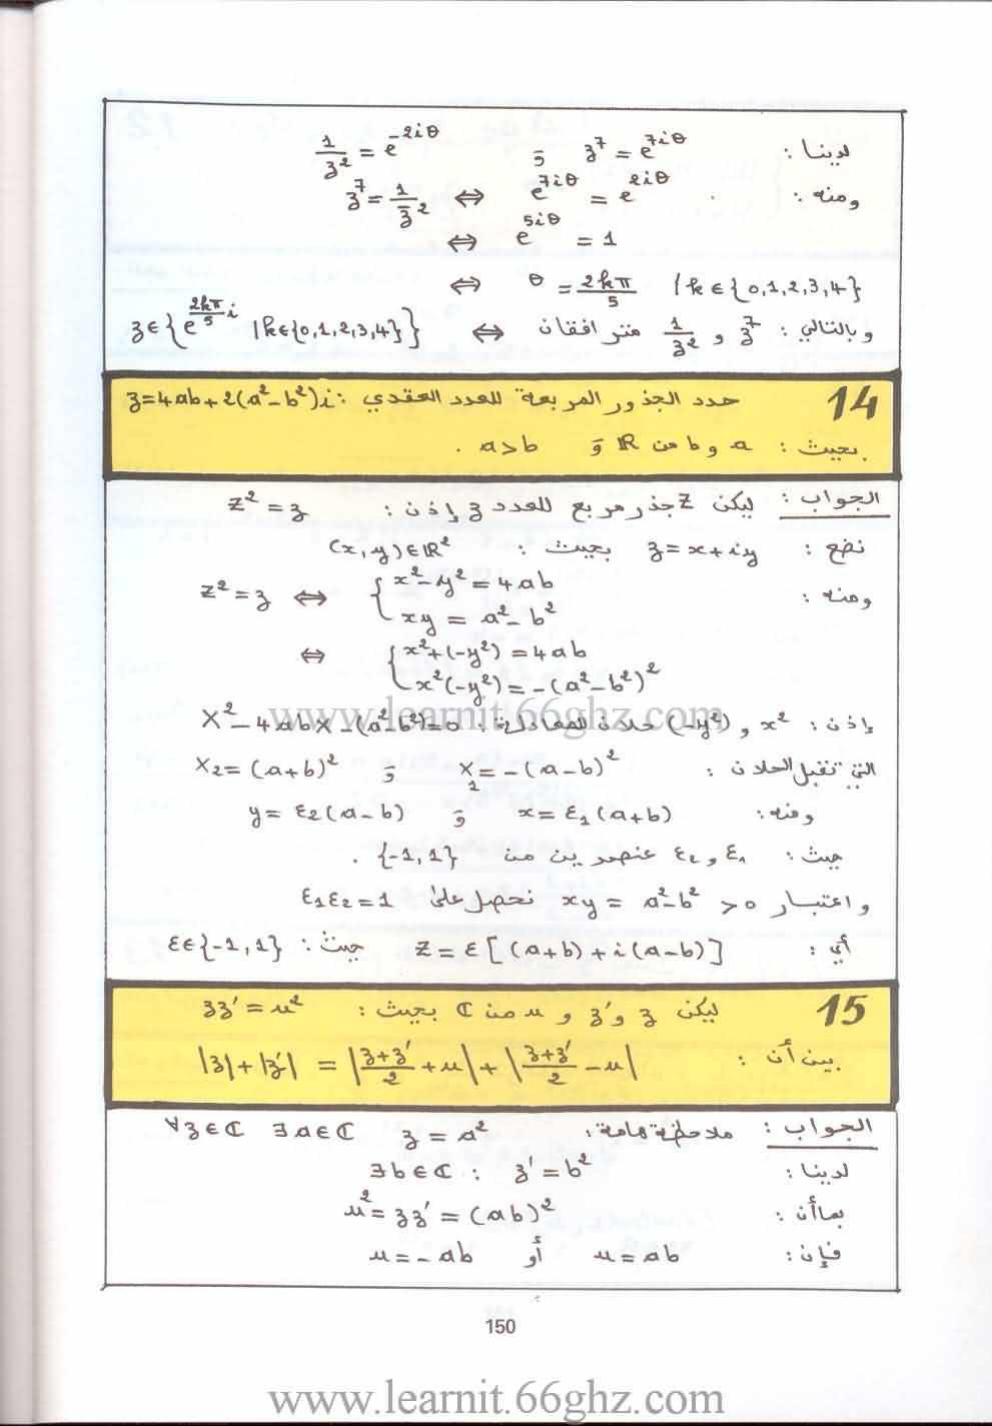 لدينا : z⁷ = e^{7iθ} و 1/z² = e^{-2iθ}
ومنه : e^{7iθ} = e^{2iθ} ⇔ z⁷ = 1/z̄²
⇔ e^{5iθ} = 1
⇔ θ = 2kπ/5 / k ∈ {0,1,2,3,4}
وبالتالي : z⁷ و 1/z² مترافقان ⇔ z ∈ {e^{2kπ/5 i} / k ∈ {0,1,2,3,4}}
14 حدد الجذور المربعة للعدد العقدي : z = 4ab + 2(a² - b²)i
بحيث : a و b من ℝ و a > b .
الجواب : ليكن Z جذر مربع للعدد z إذن : Z² = z
نضع : z = x + iy بحيث : (x, y) ∈ ℝ²
ومنه : Z² = z ⇔ { x² - y² = 4ab
xy = a² - b²
⇔ { x² + (-y²) = 4ab
x²(-y²) = -(a² - b²)²
إذن : x² و (-y²) حلان للمعادلة : X² - 4abX - (a² - b²) = 0
www.learnit.66ghz.com
التي تقبل الحلان : X₁ = -(a - b)² و X₂ = (a + b)²
ومنه : x = ε₁(a + b) و y = ε₂(a - b)
حيث : ε₁ و ε₂ عنصرين من {-1, 1} .
و اعتبار xy = a² - b² > 0 نحصل على ε₁ε₂ = 1
أي : Z = ε[(a + b) + i(a - b)] حيث : ε ∈ {-1, 1}
15 ليكن z و z' و u من ℂ بحيث : zz' = u²
بين أن : |z| + |z'| = |(z + z')/2 + u| + |(z + z')/2 - u|
الجواب : ملاحظة هامة : ∀z ∈ ℂ ∃a ∈ ℂ z = a²
لدينا : ∃b ∈ ℂ : z' = b²
بما أن : u² = zz' = (ab)²
فإن : u = ab أو u = -ab
150
www.learnit.66ghz.com